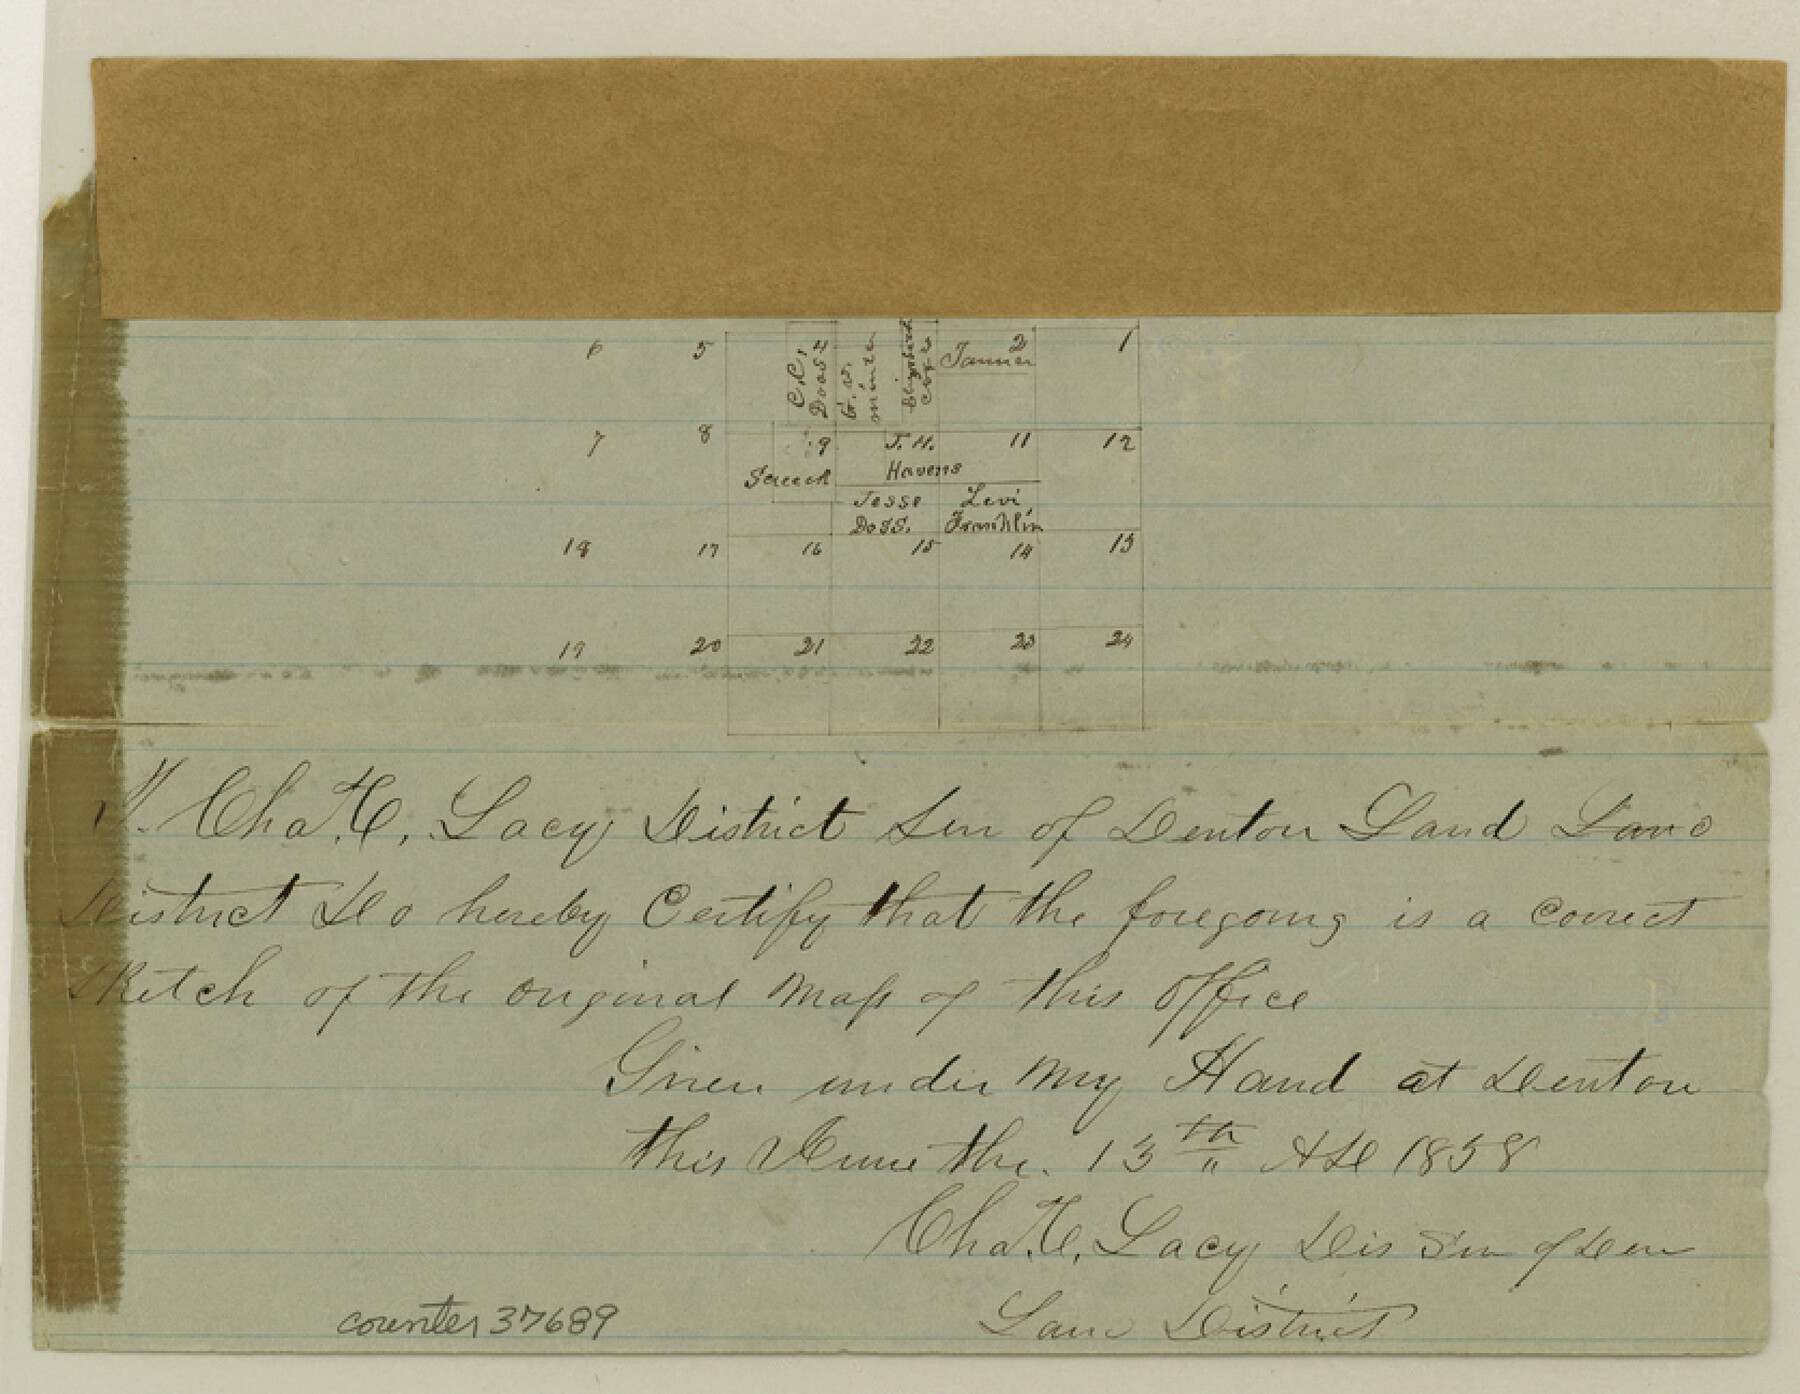 6 5 4 2 1
C.C. Doss
G. W. minter
Elizabeth
Tanner
7 8 9 J. H. 11 12
Havens
Jesse Levi
Doss. Franklin
18 17 16 15 14 13
19 20 21 22 23 24
I. Chas. C. Lacy District Sur of Denton Land Land
District Do hereby Certify that the foregoing is a Correct
Sketch of the original Map of this office
Given under My Hand at Denton
this June the. 13th AD 1858
Chas. C. Lacy Dis Sur of Den
Land District
counter 37689